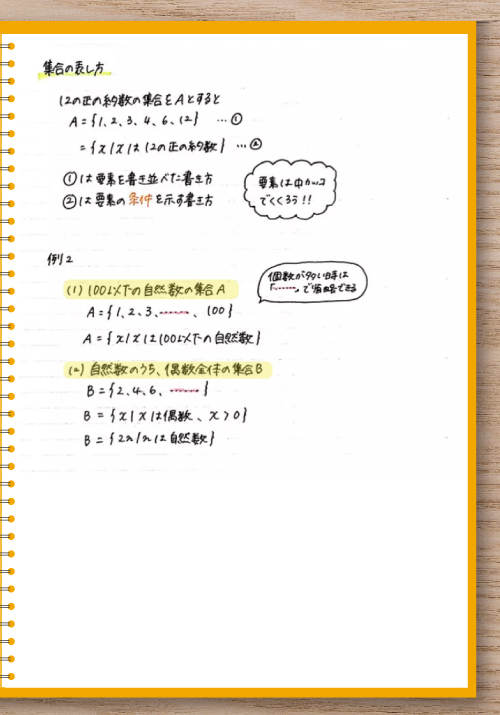 集合の表し方
12の正の約数の集合をAとすると
A={1、2、3、4、6、12} …①
={x/xは12の正の約数} …②
①は要素を書き並べた書き方
②は要素の条件を示す書き方
要素は中カッコ
でくくろう!!
例2
(1) 100以下の自然数の集合A
個数が多い時は
「……」で省略できる
A={1、2、3、……、100}
A={x/xは100以下の自然数}
(2) 自然数のうち、偶数全体の集合B
B={2、4、6、……}
B={x|xは偶数、x>0}
B={2n/nは自然数}